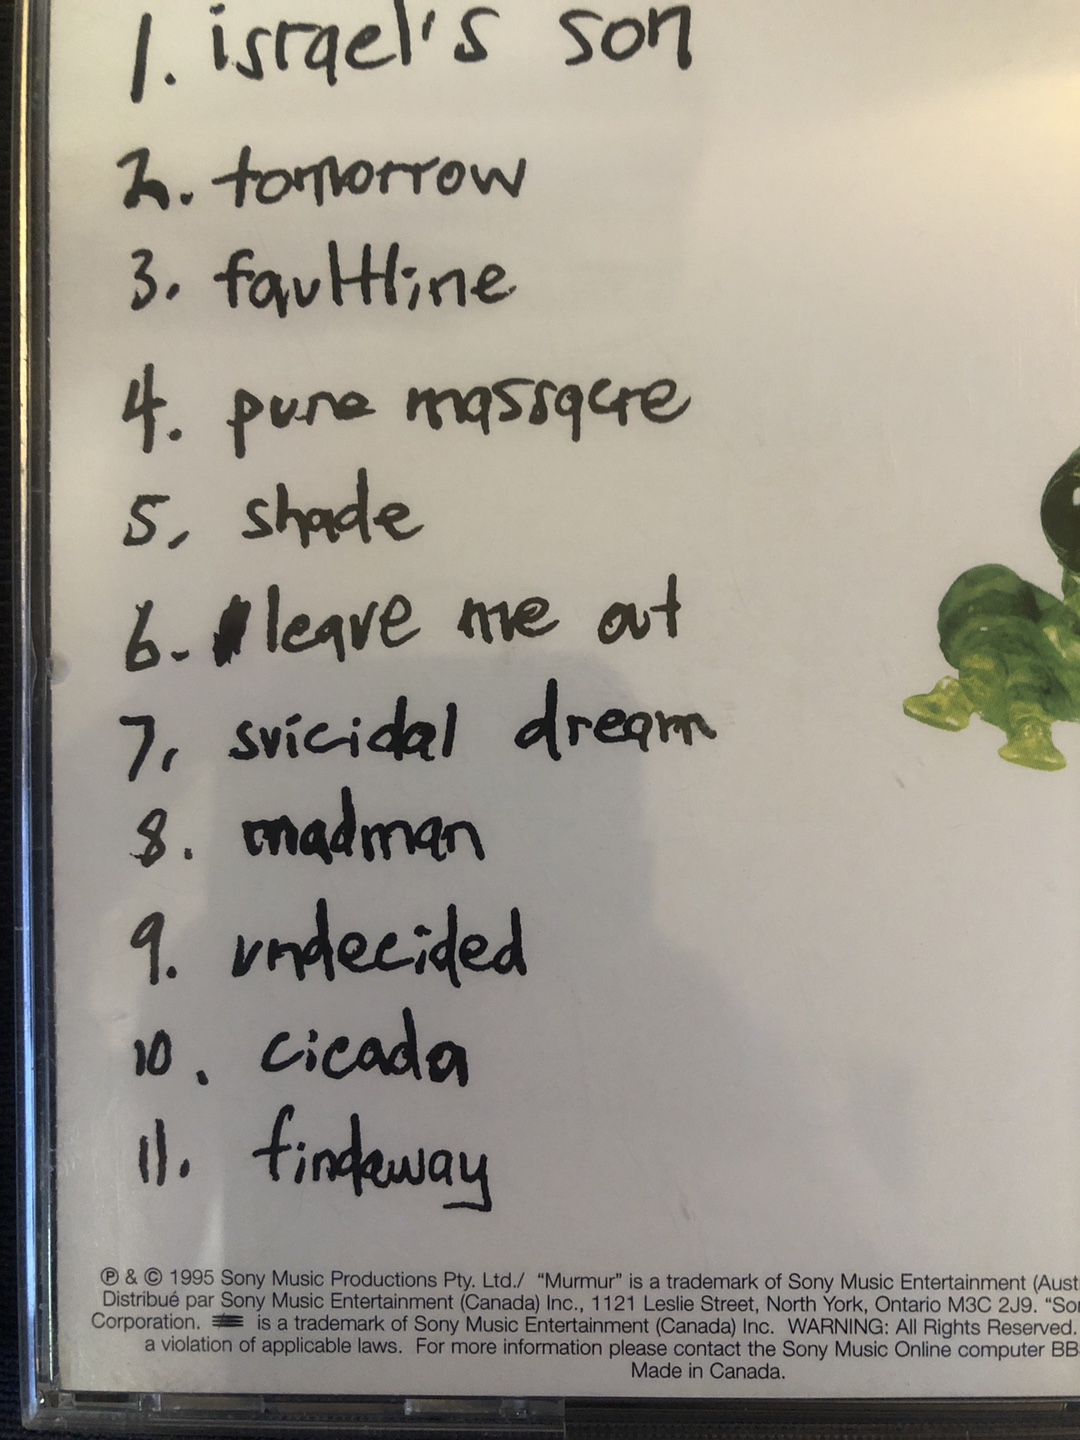 1. israel's son
2. tomorrow
3. faultline
4. pure massacre
5. shade
6. leave me out
7. suicidal dream
8. madman
9. undecided
10. cicada
11. findaway
℗ & © 1995 Sony Music Productions Pty. Ltd./ “Murmur” is a trademark of Sony Music Entertainment (Aust
Distribué par Sony Music Entertainment (Canada) Inc., 1121 Leslie Street, North York, Ontario M3C 2J9. “So
Corporation. is a trademark of Sony Music Entertainment (Canada) Inc. WARNING: All Rights Reserved.
a violation of applicable laws. For more information please contact the Sony Music Online computer BB
Made in Canada.